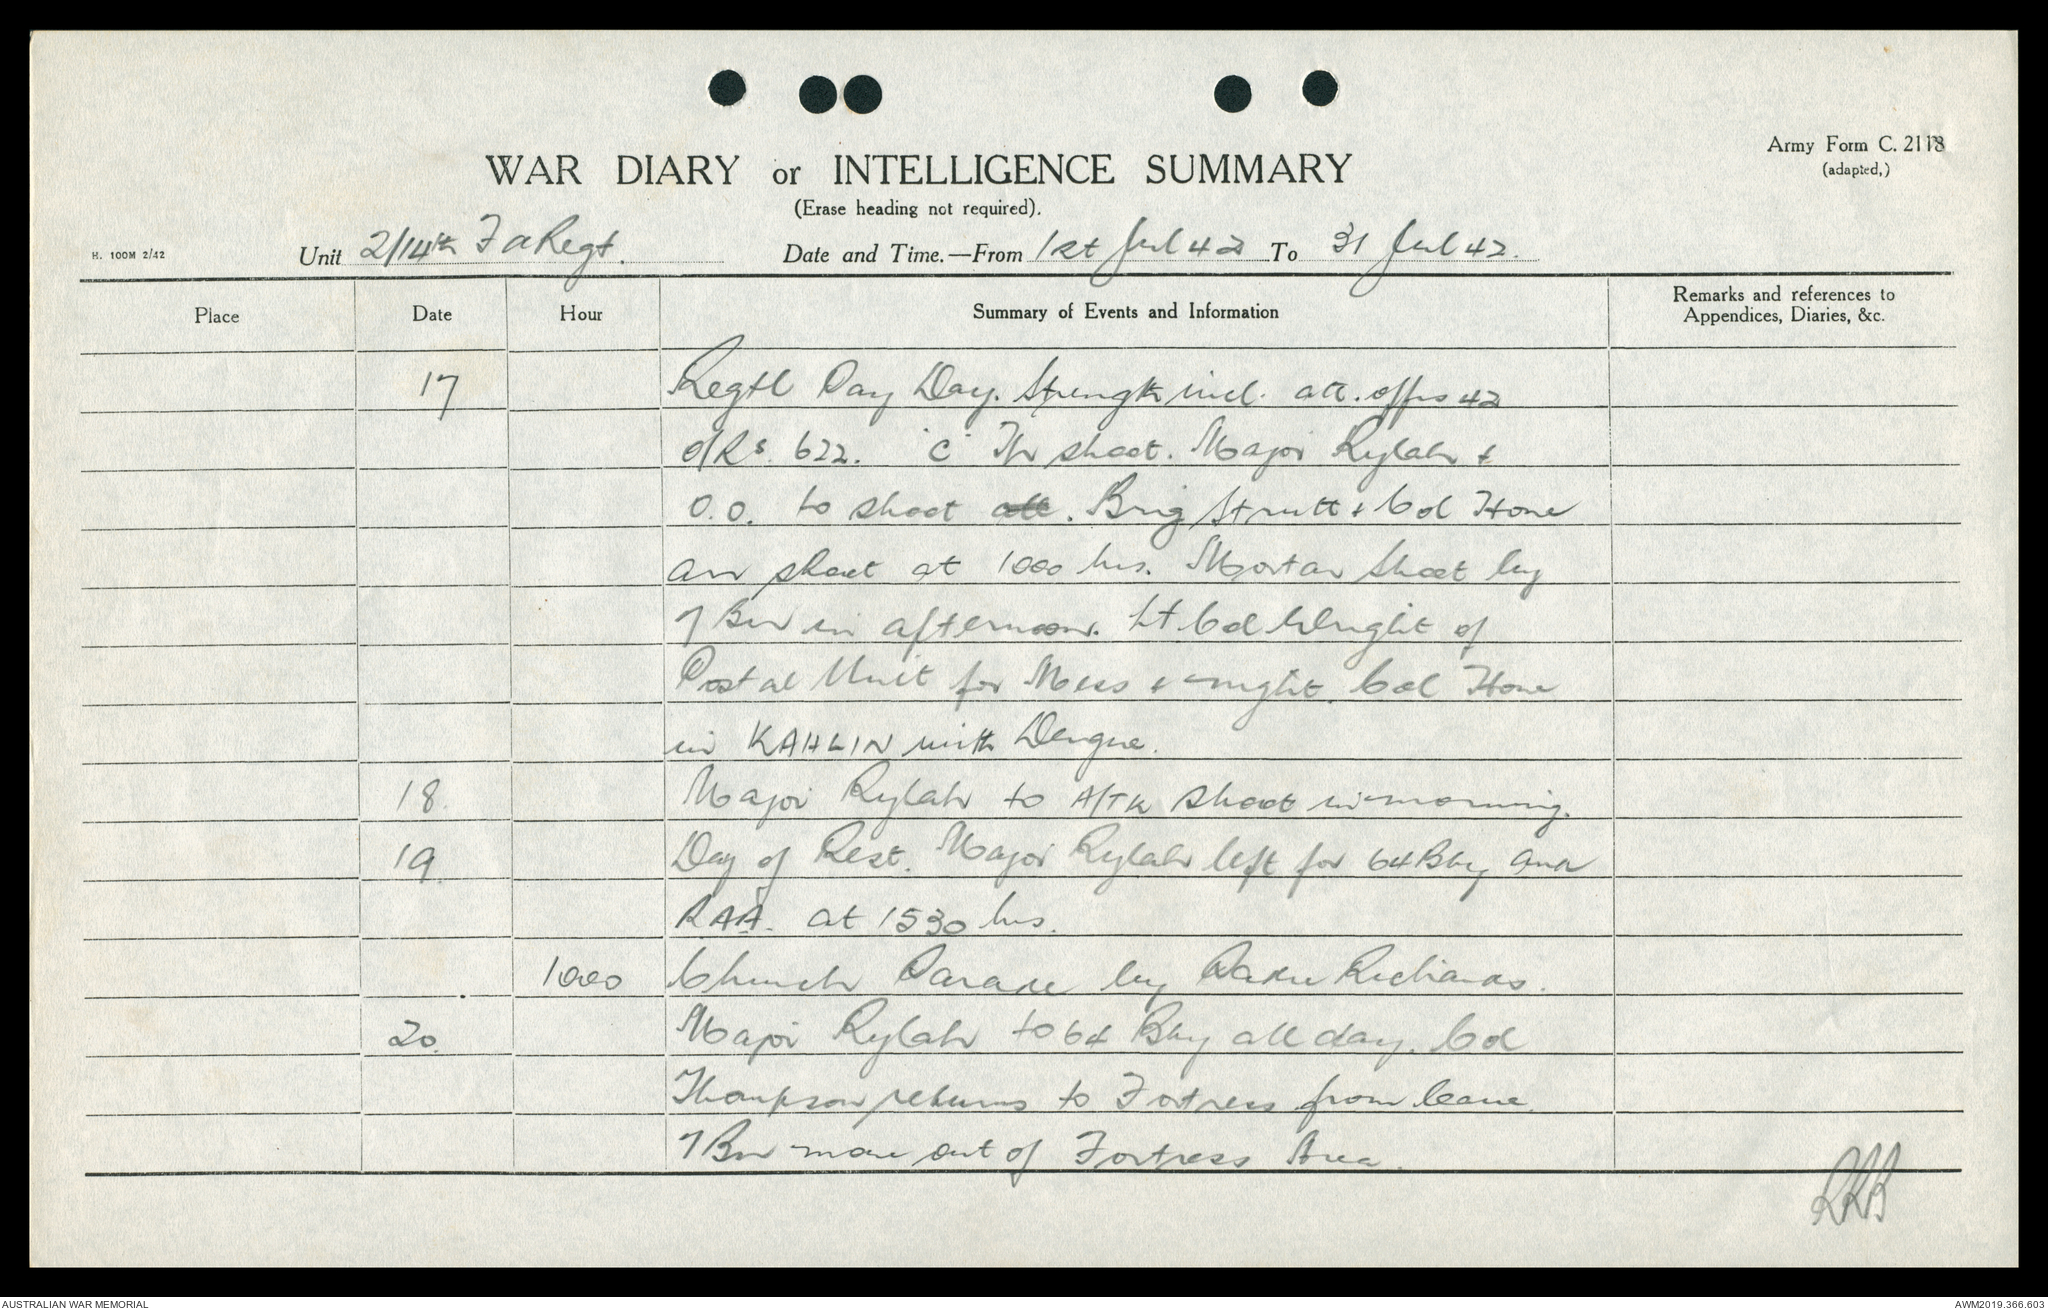 Army Form C. 2118
(adapted,)
WAR DIARY or INTELLIGENCE SUMMARY
(Erase heading not required).
H. 100M 2/42
Unit 2/14th Fa Regt.
Date and Time.—From 1st Jul 42 To 31 Jul 42.
Place Date Hour Summary of Events and Information Remarks and references to Appendices, Diaries, &c.
17 Regtl Pay Day. Strength incl. att. offrs 42
O/Rs. 622. 'C' Tp shoot. Major Rylah +
O.O. to shoot att. Brig Strutt + Col Hone
at 1000 hrs. Mortar Shoot by
7 Bn in afternoon. Lt. Col Wright of
Postal Unit for Mess + night. Col Hone
in KAHLIN with Dengue.
18. Major Rylah to A/TK shoot in morning.
19. Day of Rest. Major Rylah left for 64 Bty and
RAA. at 1530 hrs.
1000 Church Parade by Padre Richards.
20. Major Rylah to 64 Bty all day. Col
Thompson returns to Fortress from leave.
7 Bn move out of Fortress Area.
AUSTRALIAN WAR MEMORIAL
AWM2019.366.603